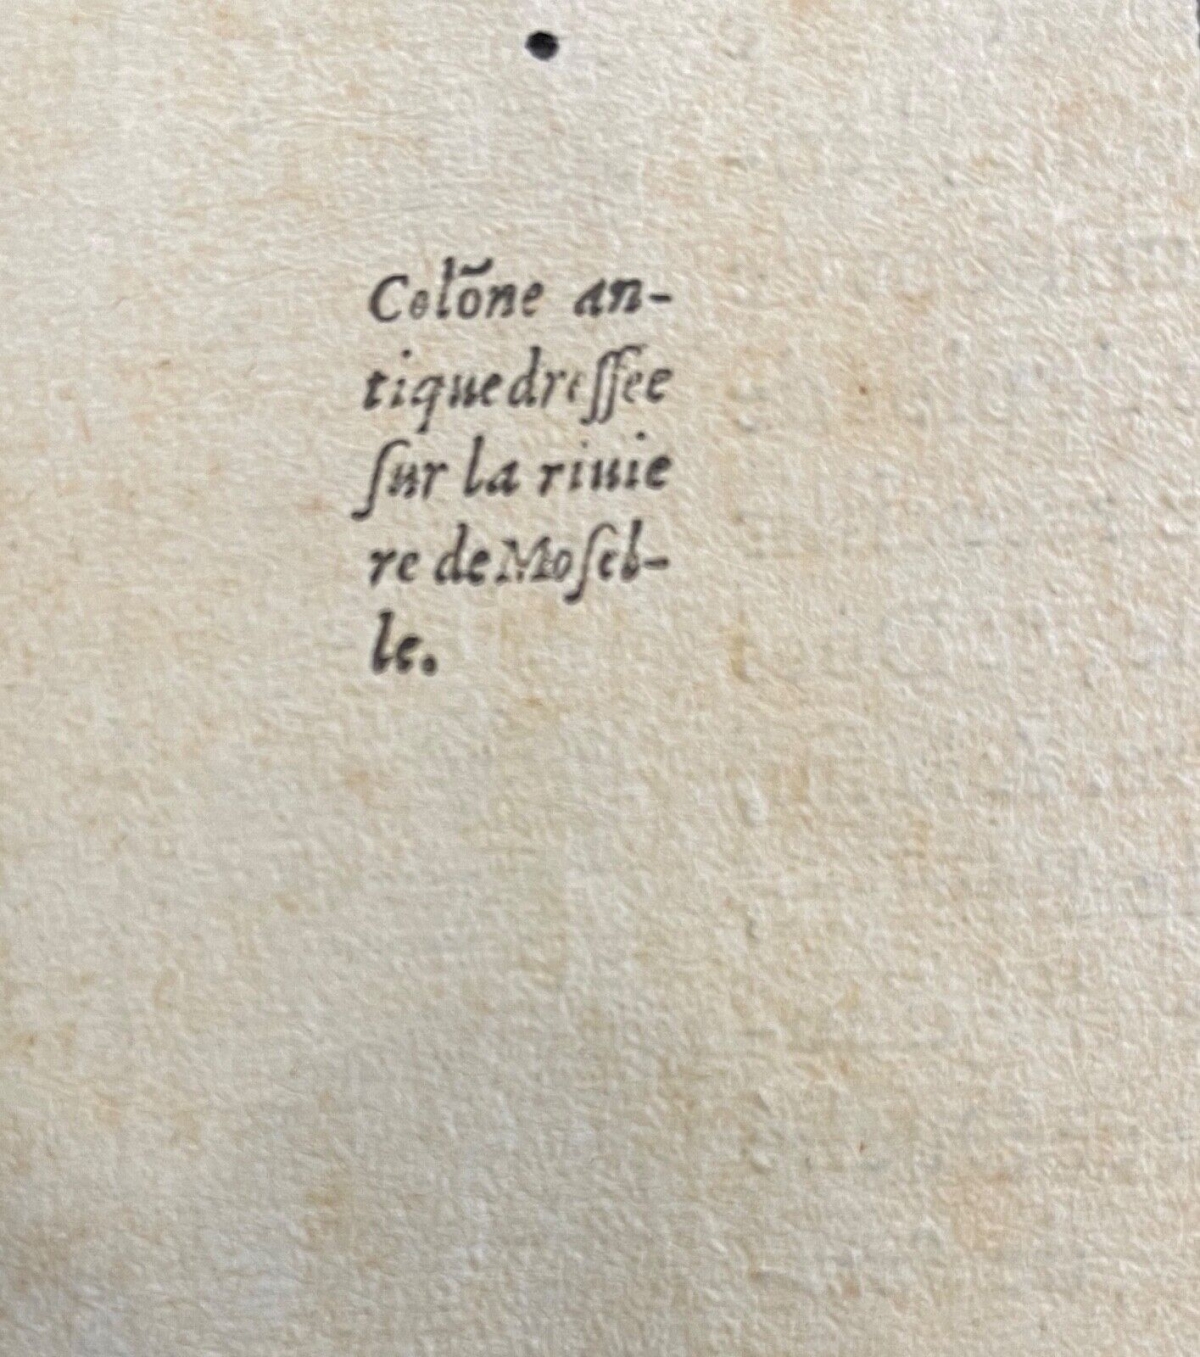 Colõne an-
tique dreſſee
ſur la riuie
re de Moſel-
le.